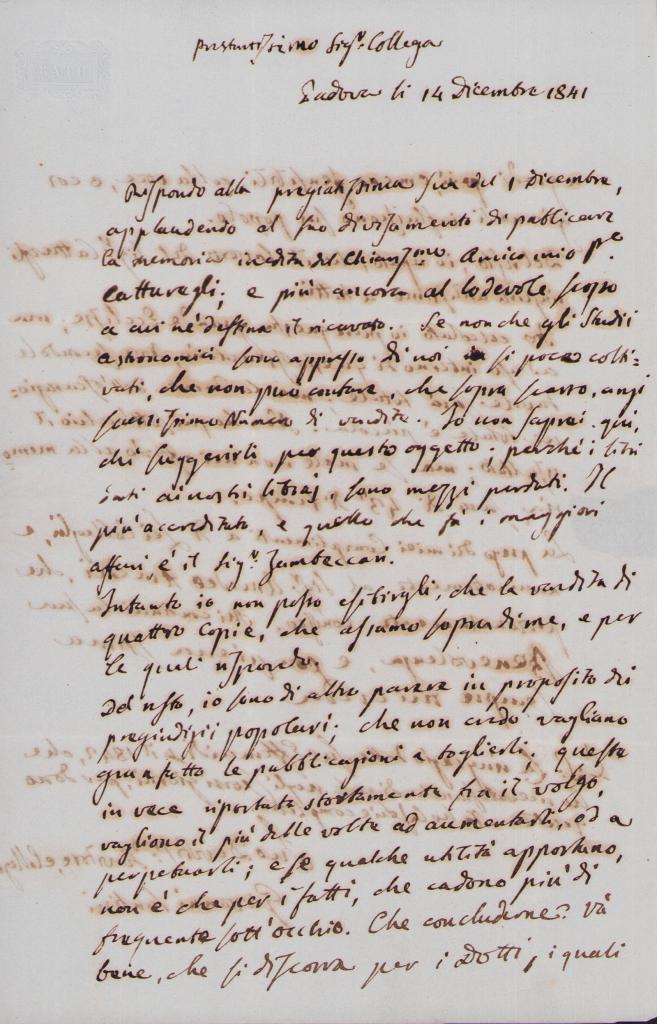 Prestantissimo Sigr. Collega
Padova li 14 Dicembre 1841
Rispondo alla pregiatissima sua del 1 Dicembre,
applaudendo al suo divisamento di publicare
la memoria inedita del Chiarissmo Amico mio Pe.
Catturegli; e più ancora al lodevole scopo
a cui ne destina il ricavato. Se non che gli Studii
astronomici sono appresso di noi sì poco colti-
vati, che non può contare, che sopra scarso, anzi
scarsissimo Numero di vendite. Io non saprei qui,
chi suggerirli per questo oggetto; perché i libri
dati ai nostri libraj, sono mezzi perduti. Il
più accreditato, e quello che fa i maggiori
affari, è il Sigr. Zambeccari.
Intanto io non posso esibirgli, che la vendita di
quattro Copie, che assumo sopra di me, e per
le quali rispondo.
Del resto, io sono di altro parere in proposito dei
pregiudizi popolari; che non credo vagliano
gran fatto le pubblicazioni a toglierli; queste
in vece riportate stortamente fra il volgo,
vagliono il più delle volte ad aumentarli, od a
perpetuarli; e se qualche utilità apportano,
non è che per i fatti, che cadono più di
frequente sott'occhio. Che concludere? Và
bene, che si discorra per i Dotti, i quali